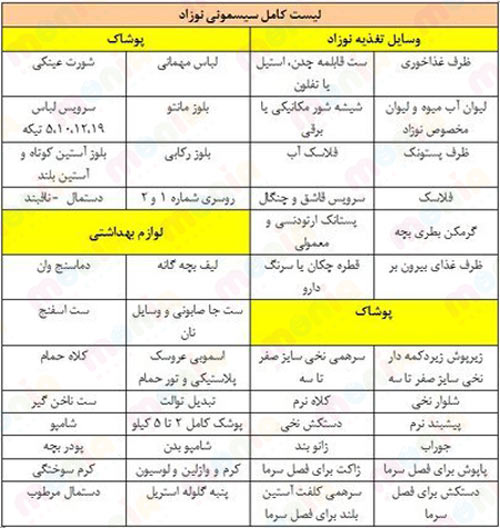 لیست کامل سیسمونی نوزاد
وسایل تغذیه نوزاد
پوشاک
ظرف غذاخوری
ست قابلمه چدن، استیل
یا تفلون
لباس مهمانی
شورت عینکی
لیوان آب میوه و لیوان
مخصوص نوزاد
شیشه شور مکانیکی یا
برقی
بلوز مانتو
سرویس لباس
۵،۱۰،۱۲،۱۹ تیکه
ظرف پستونک
فلاسک آب
بلوز رکابی
بلوز آستین کوتاه و
آستین بلند
فلاسک
سرویس قاشق و چنگال
روسری شماره ۱ و ۲
دستمال -نافبند
گرمکن بطری بچه
پستانک ارتودنسی و
معمولی
لوازم بهداشتی
ظرف غذای بیرون بر
قطره چکان یا سرنگ
دارو
لیف بچه گانه
دماسنج وان
پوشاک
ست جا صابونی و وسایل
نان
ست اسفنج
زیرپوش زیردکمه دار
نخی سایز صفر تا سه
سرهمی نخی سایز صفر
تا سه
اسموبی عروسک
پلاستیکی و تور حمام
کلاه حمام
شلوار نخی
کلاه نرم
تبدیل توالت
ست ناخن گیر
پیشبند نرم
دستکش نخی
پوشک کامل ۲ تا ۵ کیلو
شامپو
جوراب
زانو بند
شامپو بدن
پودر بچه
پاپوش برای فصل سرما
ژاکت برای فصل سرما
کرم و وازلین و لوسیون
کرم سوختگی
دستکش برای فصل
سرما
سرهمی کلفت آستین
بلند برای فصل سرما
پنبه گلوله استریل
دستمال مرطوب